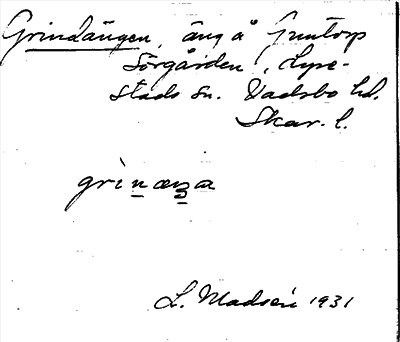 Grindängen, äng å Gruntorp
Sörgården, Lyre-
stads sn. Vadsbo hd.
Skar. l.
grìnæŋa
L. Madsén 1931